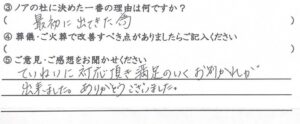 ③ノアの杜に決めた一番の理由は何ですか?
( 最初に出てきた為 )
④葬儀・ご火葬で改善すべき点がありましたらご記入ください
( )
⑤ご意見・ご感想をお聞かせください
ていねいに対応頂き満足のいくお別れが
出来ました。ありがとうございました。